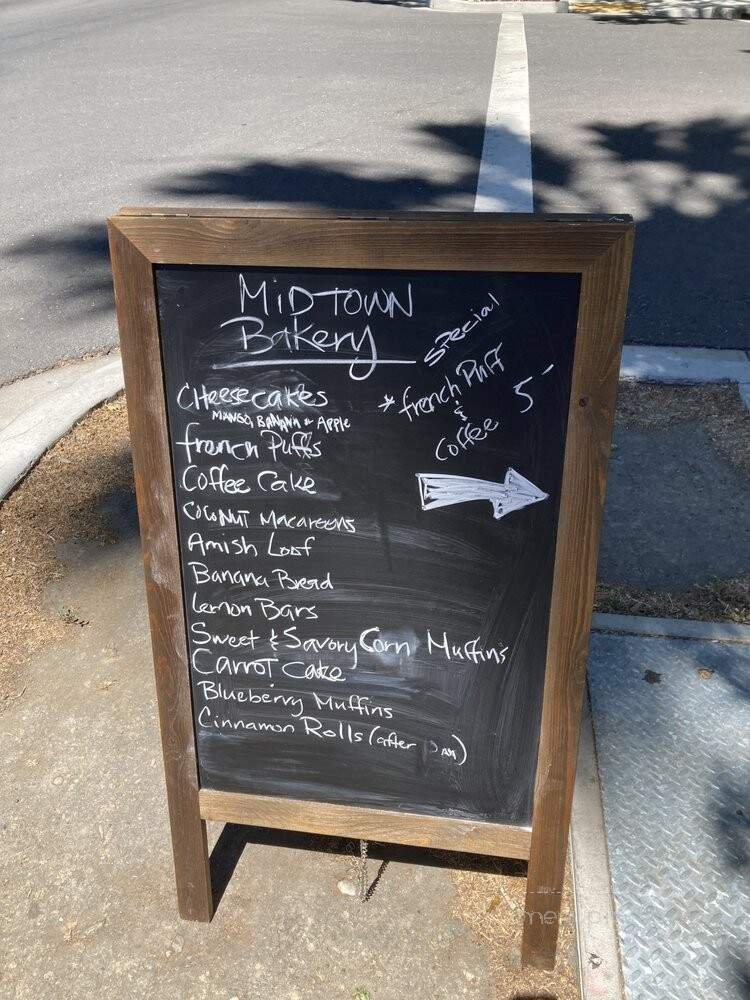 MiDTOWN
Bakery
Special
* french Puff
&
Coffee 5-
CHeesecakes
MANGO, BANANA & Apple
french Puffs
Coffee Cake
COCONUT Macaroons
Amish Loaf
Banana Bread
Lemon Bars
Sweet & Savory Corn Muffins
Carrot Cake
Blueberry Muffins
Cinnamon Rolls (after